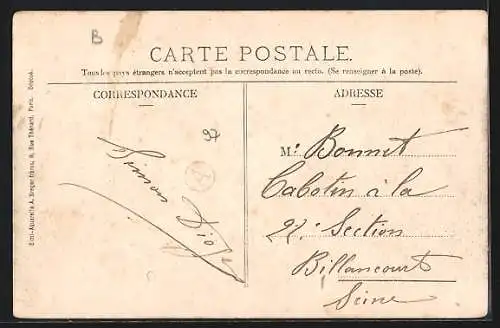 B
CARTE POSTALE.
Tous les pays étrangers n'acceptent pas la correspondance au recto. (Se renseigner à la poste).
CORRESPONDANCE
ADRESSE
97
Simon
M. Bonnet
Cabotin à la
22: Section
Billancourt
Seine
Simi-Aquarelle A. Breger Frères, 9, Rue Thénard, Paris. Déposé.